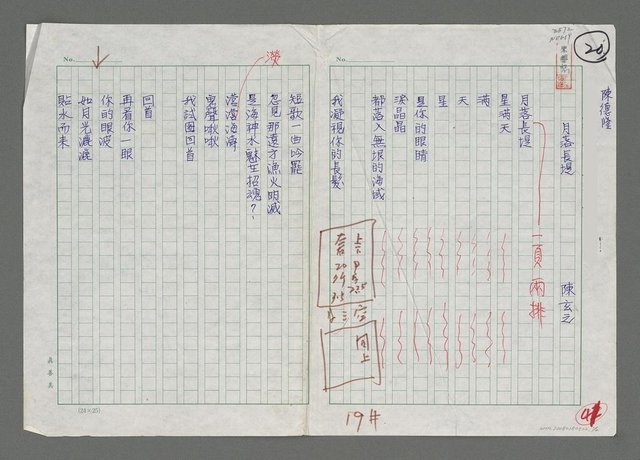 陳德隆
月落長堤
陳玄之
月落長堤
星满天
满
天
星
是你的眼睛
淚晶晶
都落入無垠的海域
我凝視你的長髮
短歌一曲吟罷
忽見那遠方漁火明滅
是海神木魅在招魂？
鬼聲啾啾
我試圖回首
回首
再看你一眼
你的眼波
如月光瀲灔
貼水而來
一頁兩排
同上
19#
20
No.
No.
(24×25)
真善美